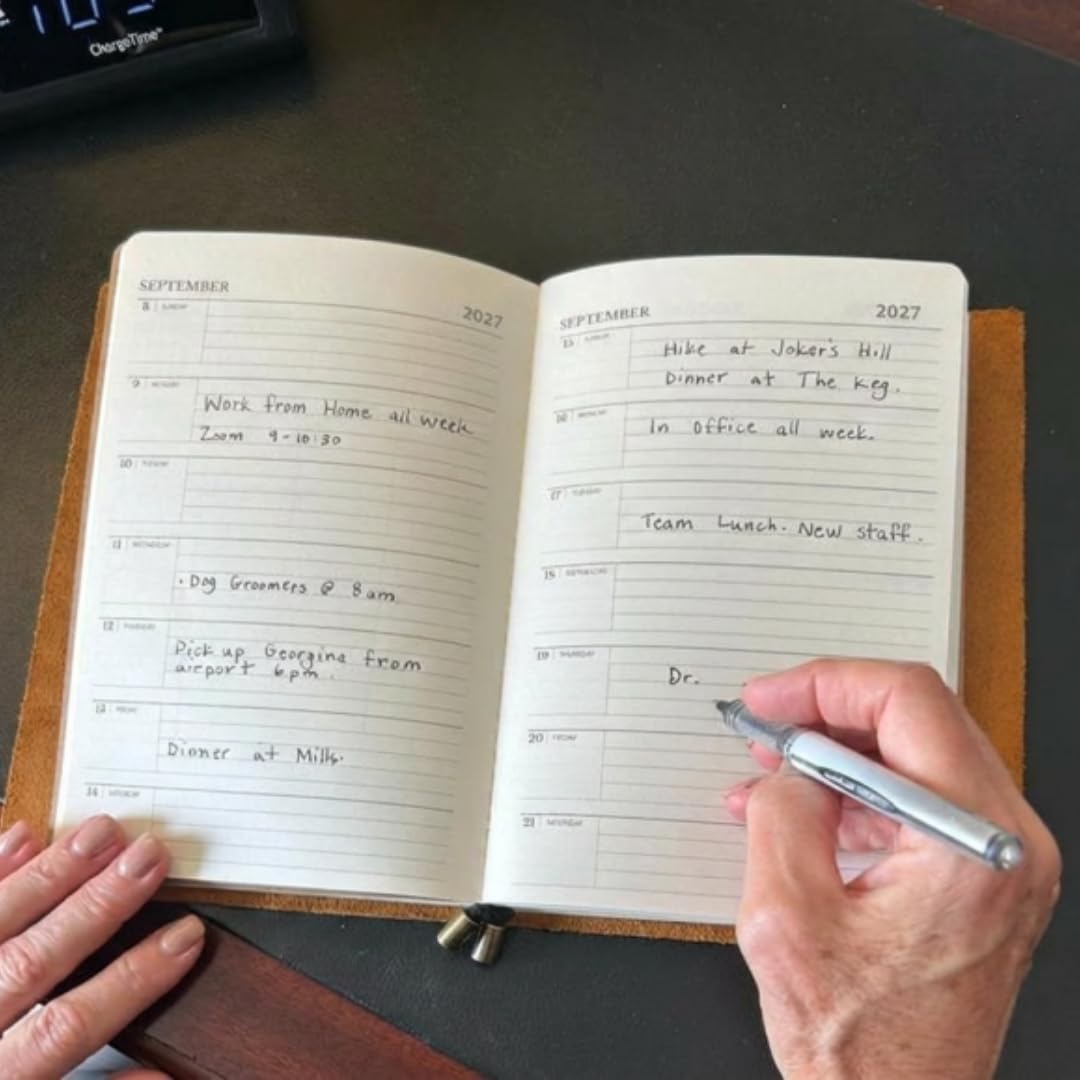 ChargeTime™
SEPTEMBER
2027
8 SUNDAY
9 MONDAY
Work from Home all week
Zoom 9-10:30
10 TUESDAY
11 WEDNESDAY
· Dog Groomers @ 8am
12 THURSDAY
Pick up Georgina from
airport 6pm.
13 FRIDAY
Dinner at Mills.
14 SATURDAY
SEPTEMBER
2027
15 SUNDAY
Hike at Joker's Hill
Dinner at The Keg.
16 MONDAY
In Office all week.
17 TUESDAY
Team Lunch. New staff.
18 WEDNESDAY
19 THURSDAY
Dr.
20 FRIDAY
21 SATURDAY